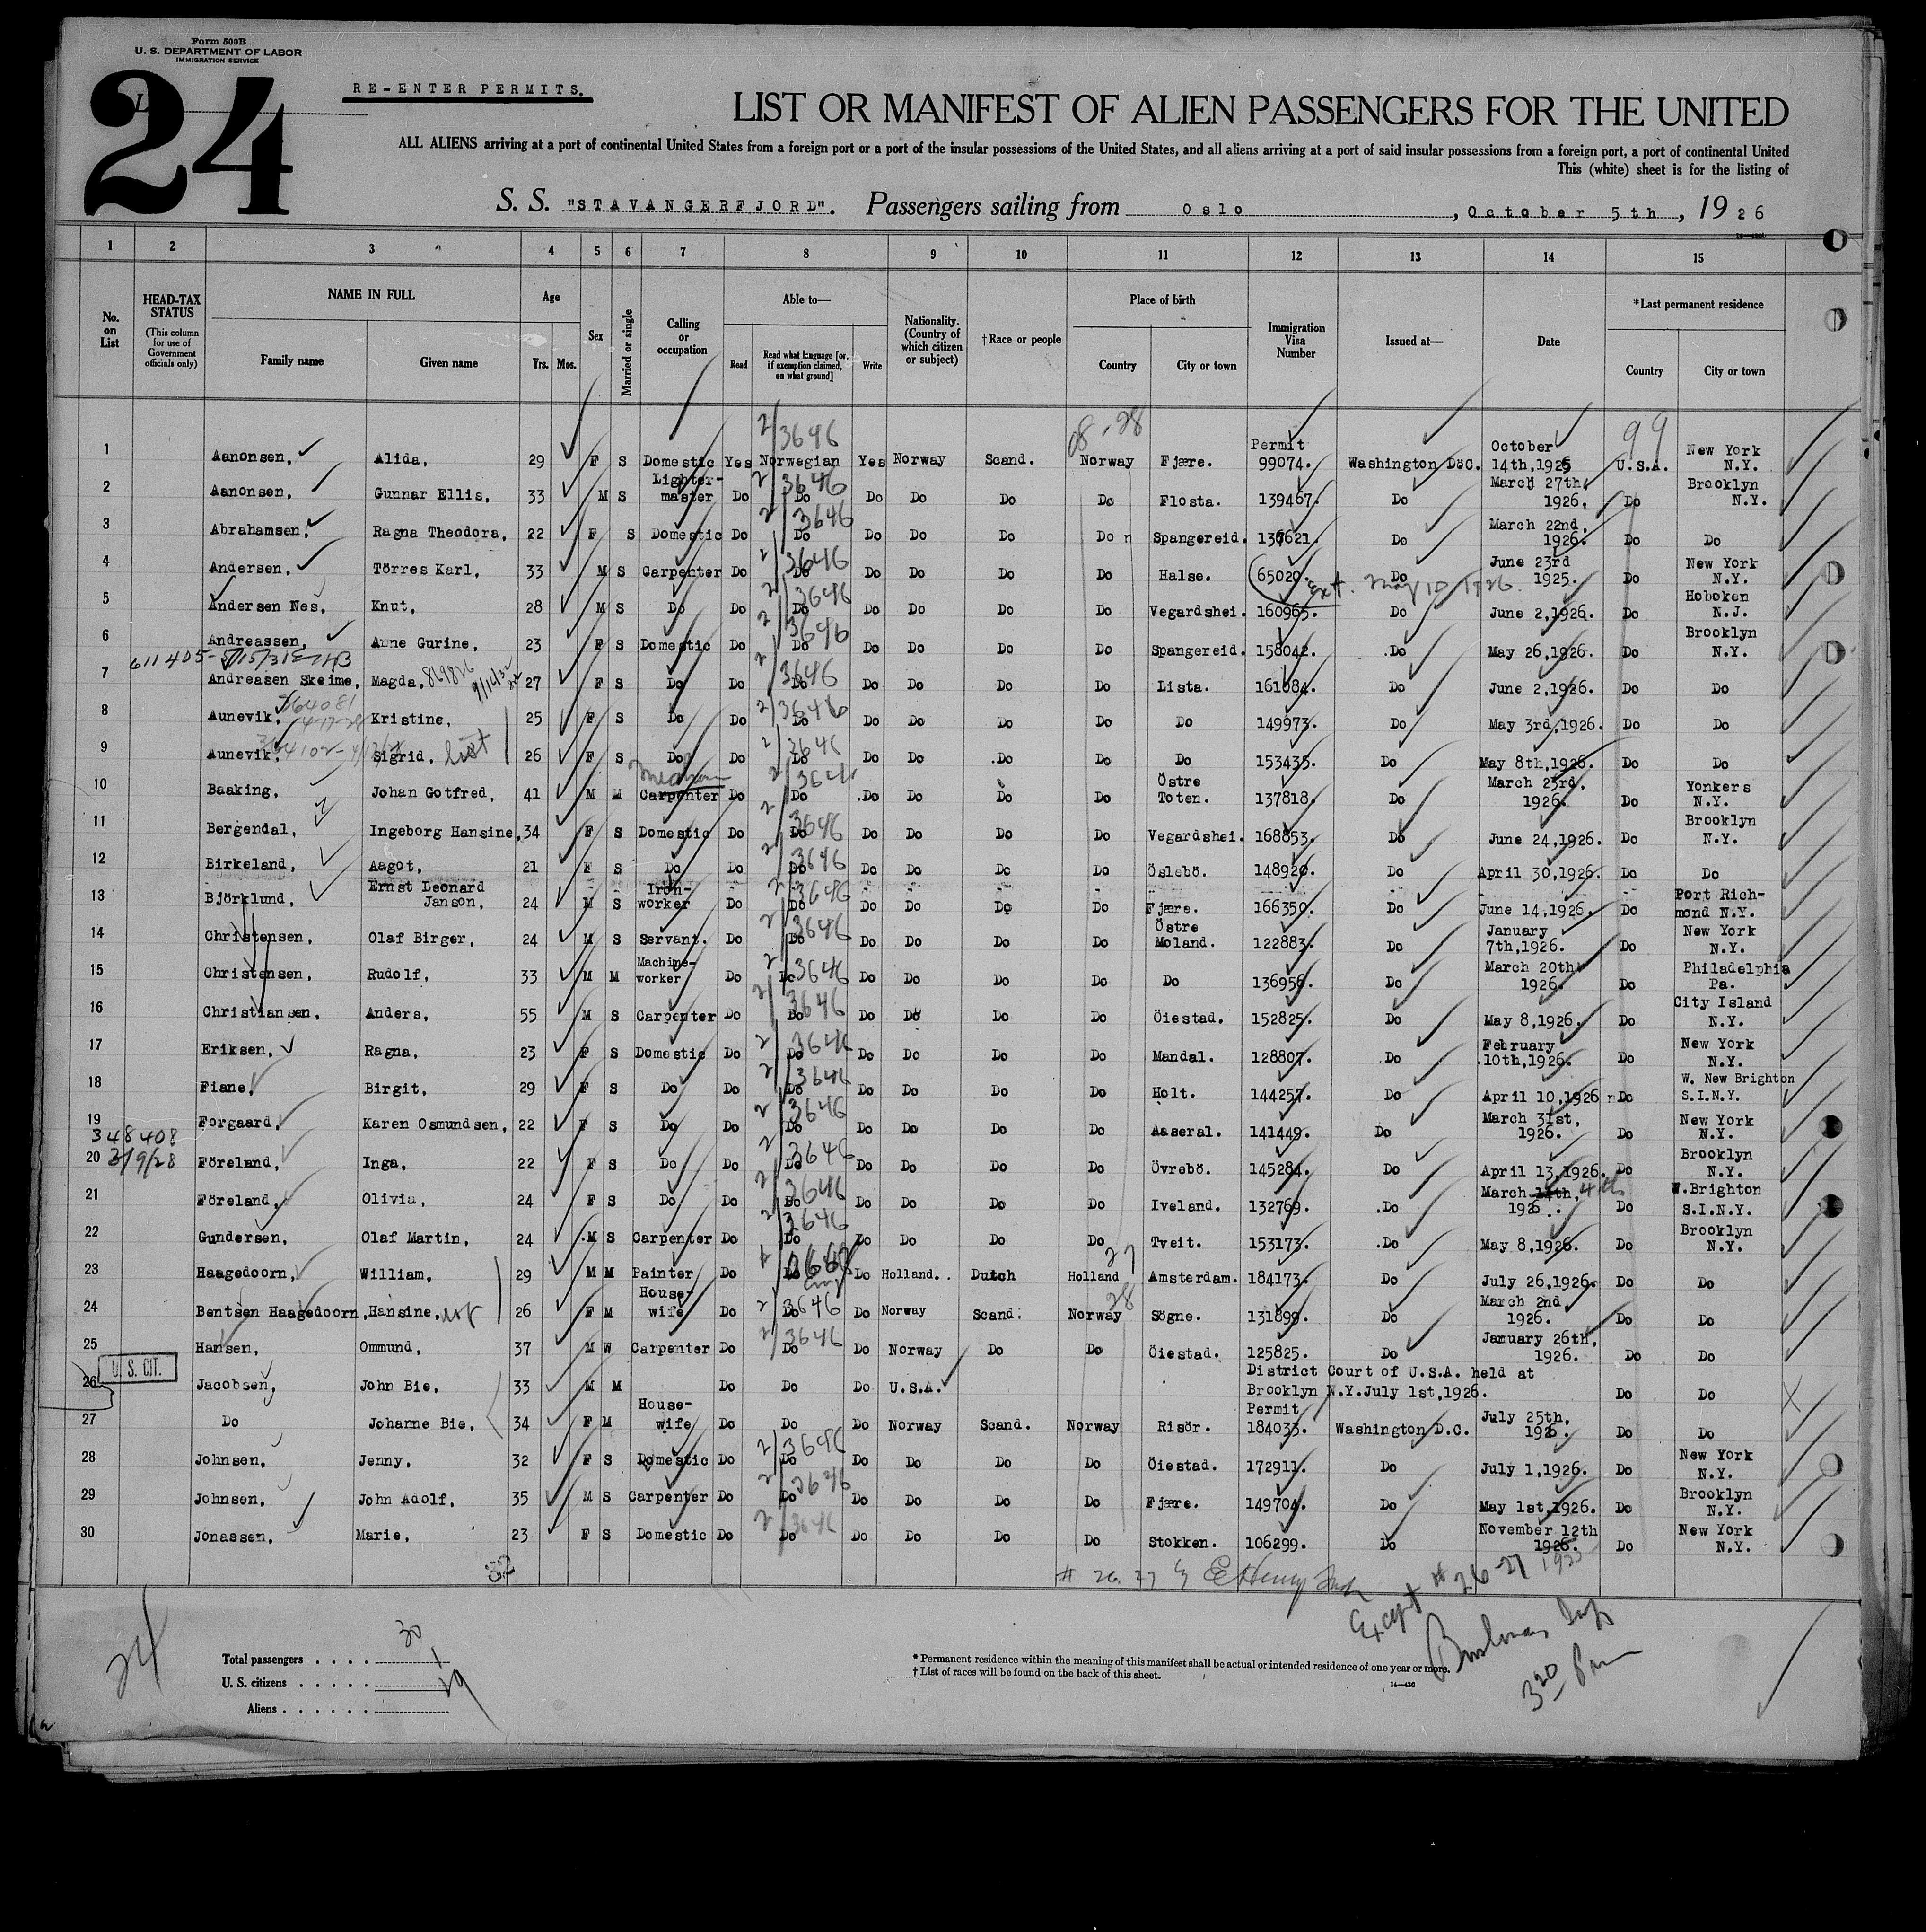 Form 500B
U. S. DEPARTMENT OF LABOR
IMMIGRATION SERVICE
24
RE-ENTER PERMITS.
LIST OR MANIFEST OF ALIEN PASSENGERS FOR THE UNITED
ALL ALIENS arriving at a port of continental United States from a foreign port or a port of the insular possessions of the United States, and all aliens arriving at a port of said insular possessions from a foreign port, a port of continental United
This (white) sheet is for the listing of
S. S. "STAVANGERFJORD". Passengers sailing from Oslo, October 5th, 1926
1 2 3 4 5 6 7 8 9 10 11 12 13 14 15
No. on List
HEAD-TAX STATUS (This column for use of Government officials only)
NAME IN FULL Family name Given name
Age Yrs. Mos.
Sex
Married or single
Calling or occupation
Able to— Read Read what language [or, if exemption claimed, on what ground] Write
Nationality. (Country of which citizen or subject)
†Race or people
Place of birth Country City or town
Immigration Visa Number
Issued at—
Date
*Last permanent residence Country City or town
08-28 99
1 Aanonsen, Alida, 29 F S Domestic Yes Norwegian 2/3646 Yes Norway Scand. Norway Fjære. Permit 99074. Washington D.C. October 14th,1925 U.S.A. New York N.Y.
2 Aanonsen, Gunnar Ellis, 33 M S Lighter-master Do Do 2/3646 Do Do Do Do Flosta. 139467. Do March 27th, 1926. Do Brooklyn N.Y.
3 Abrahamsen, Ragna Theodora, 22 F S Domestic Do Do 2/3646 Do Do Do Do Spangereid. 137621. Do March 22nd, 1926. Do Do
4 Andersen, Törres Karl, 33 M S Carpenter Do Do 2/3646 Do Do Do Do Halse. 65020. Do June 23rd 1925. Do New York N.Y.
Ext. May 10 1926.
5 Andersen Nes, Knut, 28 M S Do Do Do 2/3646 Do Do Do Do Vegardshei. 160965. Do June 2,1926. Do Hoboken N.J.
6 Andreassen, Anne Gurine, 23 F S Domestic Do Do 2/3646 Do Do Do Do Spangereid. 158042. Do May 26,1926. Do Brooklyn N.Y.
611405-5/15/31
7 Andreasen Skeime, Magda, 27 F S Do Do Do 2/3646 Do Do Do Do Lista. 161084. Do June 2,1926. Do Do
8 Aunevik, Kristine, 25 F S Do Do Do 2/3646 Do Do Do Do Do 149973. Do May 3rd,1926. Do Do
9 Aunevik, Sigrid, 26 F S Do Do Do 2/3646 Do Do Do Do Do 153435. Do May 8th,1926. Do Do
10 Baaking, Johan Gotfred, 41 M M Carpenter Do Do 2/3646 Do Do Do Do Östre Toten. 137818. Do March 23rd, 1926. Do Yonkers N.Y.
11 Bergendal, Ingeborg Hansine, 34 F S Domestic Do Do 2/3646 Do Do Do Do Vegardshei. 168853. Do June 24,1926. Do Brooklyn N.Y.
12 Birkeland, Aagot, 21 F S Do Do Do 2/3646 Do Do Do Do Öslebö. 148920. Do April 30,1926. Do Do
13 Björklund, Ernst Leonard Janson, 24 M S Iron-worker Do Do 2/3646 Do Do Do Do Fjære. 166350. Do June 14,1926. Do Port Rich-mond N.Y.
14 Christensen, Olaf Birger, 24 M S Servant. Do Do 2/3646 Do Do Do Do Östre Moland. 122883. Do January 7th,1926. Do New York N.Y.
15 Christensen, Rudolf, 33 M M Machine-worker Do Do 2/3646 Do Do Do Do Do 136956. Do March 20th 1926. Do Philadelphia Pa.
16 Christiansen, Anders, 55 M S Carpenter Do Do 2/3646 Do Do Do Do Öiestad. 152825. Do May 8,1926. Do City Island N.Y.
17 Eriksen, Ragna, 23 F S Domestic Do Do 2/3646 Do Do Do Do Mandal. 128807. Do February 10th,1926. Do New York N.Y.
18 Fiane, Birgit, 29 F S Do Do Do 2/3646 Do Do Do Do Holt. 144257. Do April 10,1926 Do W. New Brighton S.I.N.Y.
19 Forgaard, Karen Osmundsen, 22 F S Do Do Do 2/3646 Do Do Do Do Aaseral. 141449. Do March 31st, 1926. Do New York N.Y.
348408
3/9/28
20 Föreland, Inga, 22 F S Do Do Do 2/3646 Do Do Do Do Övrebö. 145284. Do April 13,1926. Do Brooklyn N.Y.
21 Föreland, Olivia, 24 F S Do Do Do 2/3646 Do Do Do Do Iveland. 132769. Do March 14th, 4th 1926. Do W.Brighton S.I.N.Y.
22 Gundersen, Olaf Martin, 24 M S Carpenter Do Do 2/3646 Do Do Do Do Tveit. 153173. Do May 8,1926. Do Brooklyn N.Y.
23 Haagedoorn, William, 29 M M Painter Do Do Eng Do Holland. Dutch Holland 27 Amsterdam. 184173. Do July 26,1926. Do Do
24 Bentsen Haagedoorn, Hansine, 26 F M House-wife Do Do 2/3646 Do Norway Scand. Norway 28 Sögne. 131899. Do March 2nd, 1926. Do Do
25 Hansen, Ommund, 37 M W Carpenter Do Do 2/3646 Do Norway Do Do Öiestad. 125825. Do January 26th, 1926. Do Do
U. S. CIT.
26 Jacobsen, John Bie, 33 M M Do Do Do U.S.A. District Court of U.S.A. held at Brooklyn N.Y.July 1st,1926. Do Do
27 Do Johanne Bie, 34 F M House-wife Do Do Do Norway Scand. Norway Risör. Permit 184033. Washington D.C. July 25th, 1926. Do Do
28 Johnsen, Jenny, 32 F S Domestic Do Do 2/3646 Do Do Do Do Öiestad. 172911. Do July 1,1926. Do New York N.Y.
29 Johnsen, John Adolf, 35 M S Carpenter Do Do 2/3646 Do Do Do Do Fjære. 149704. Do May 1st,1926. Do Brooklyn N.Y.
30 Jonassen, Marie, 23 F S Domestic Do Do 2/3646 Do Do Do Do Stokken. 106299. Do November 12th 1926. 1925 Do New York N.Y.
32
# 26. 27
Except # 26-27
24
3 20 Pm
Total passengers . . . . 30
U. S. citizens . . . . . 1
Aliens . . . . . . 29
* Permanent residence within the meaning of this manifest shall be actual or intended residence of one year or more.
† List of races will be found on the back of this sheet.
14—430